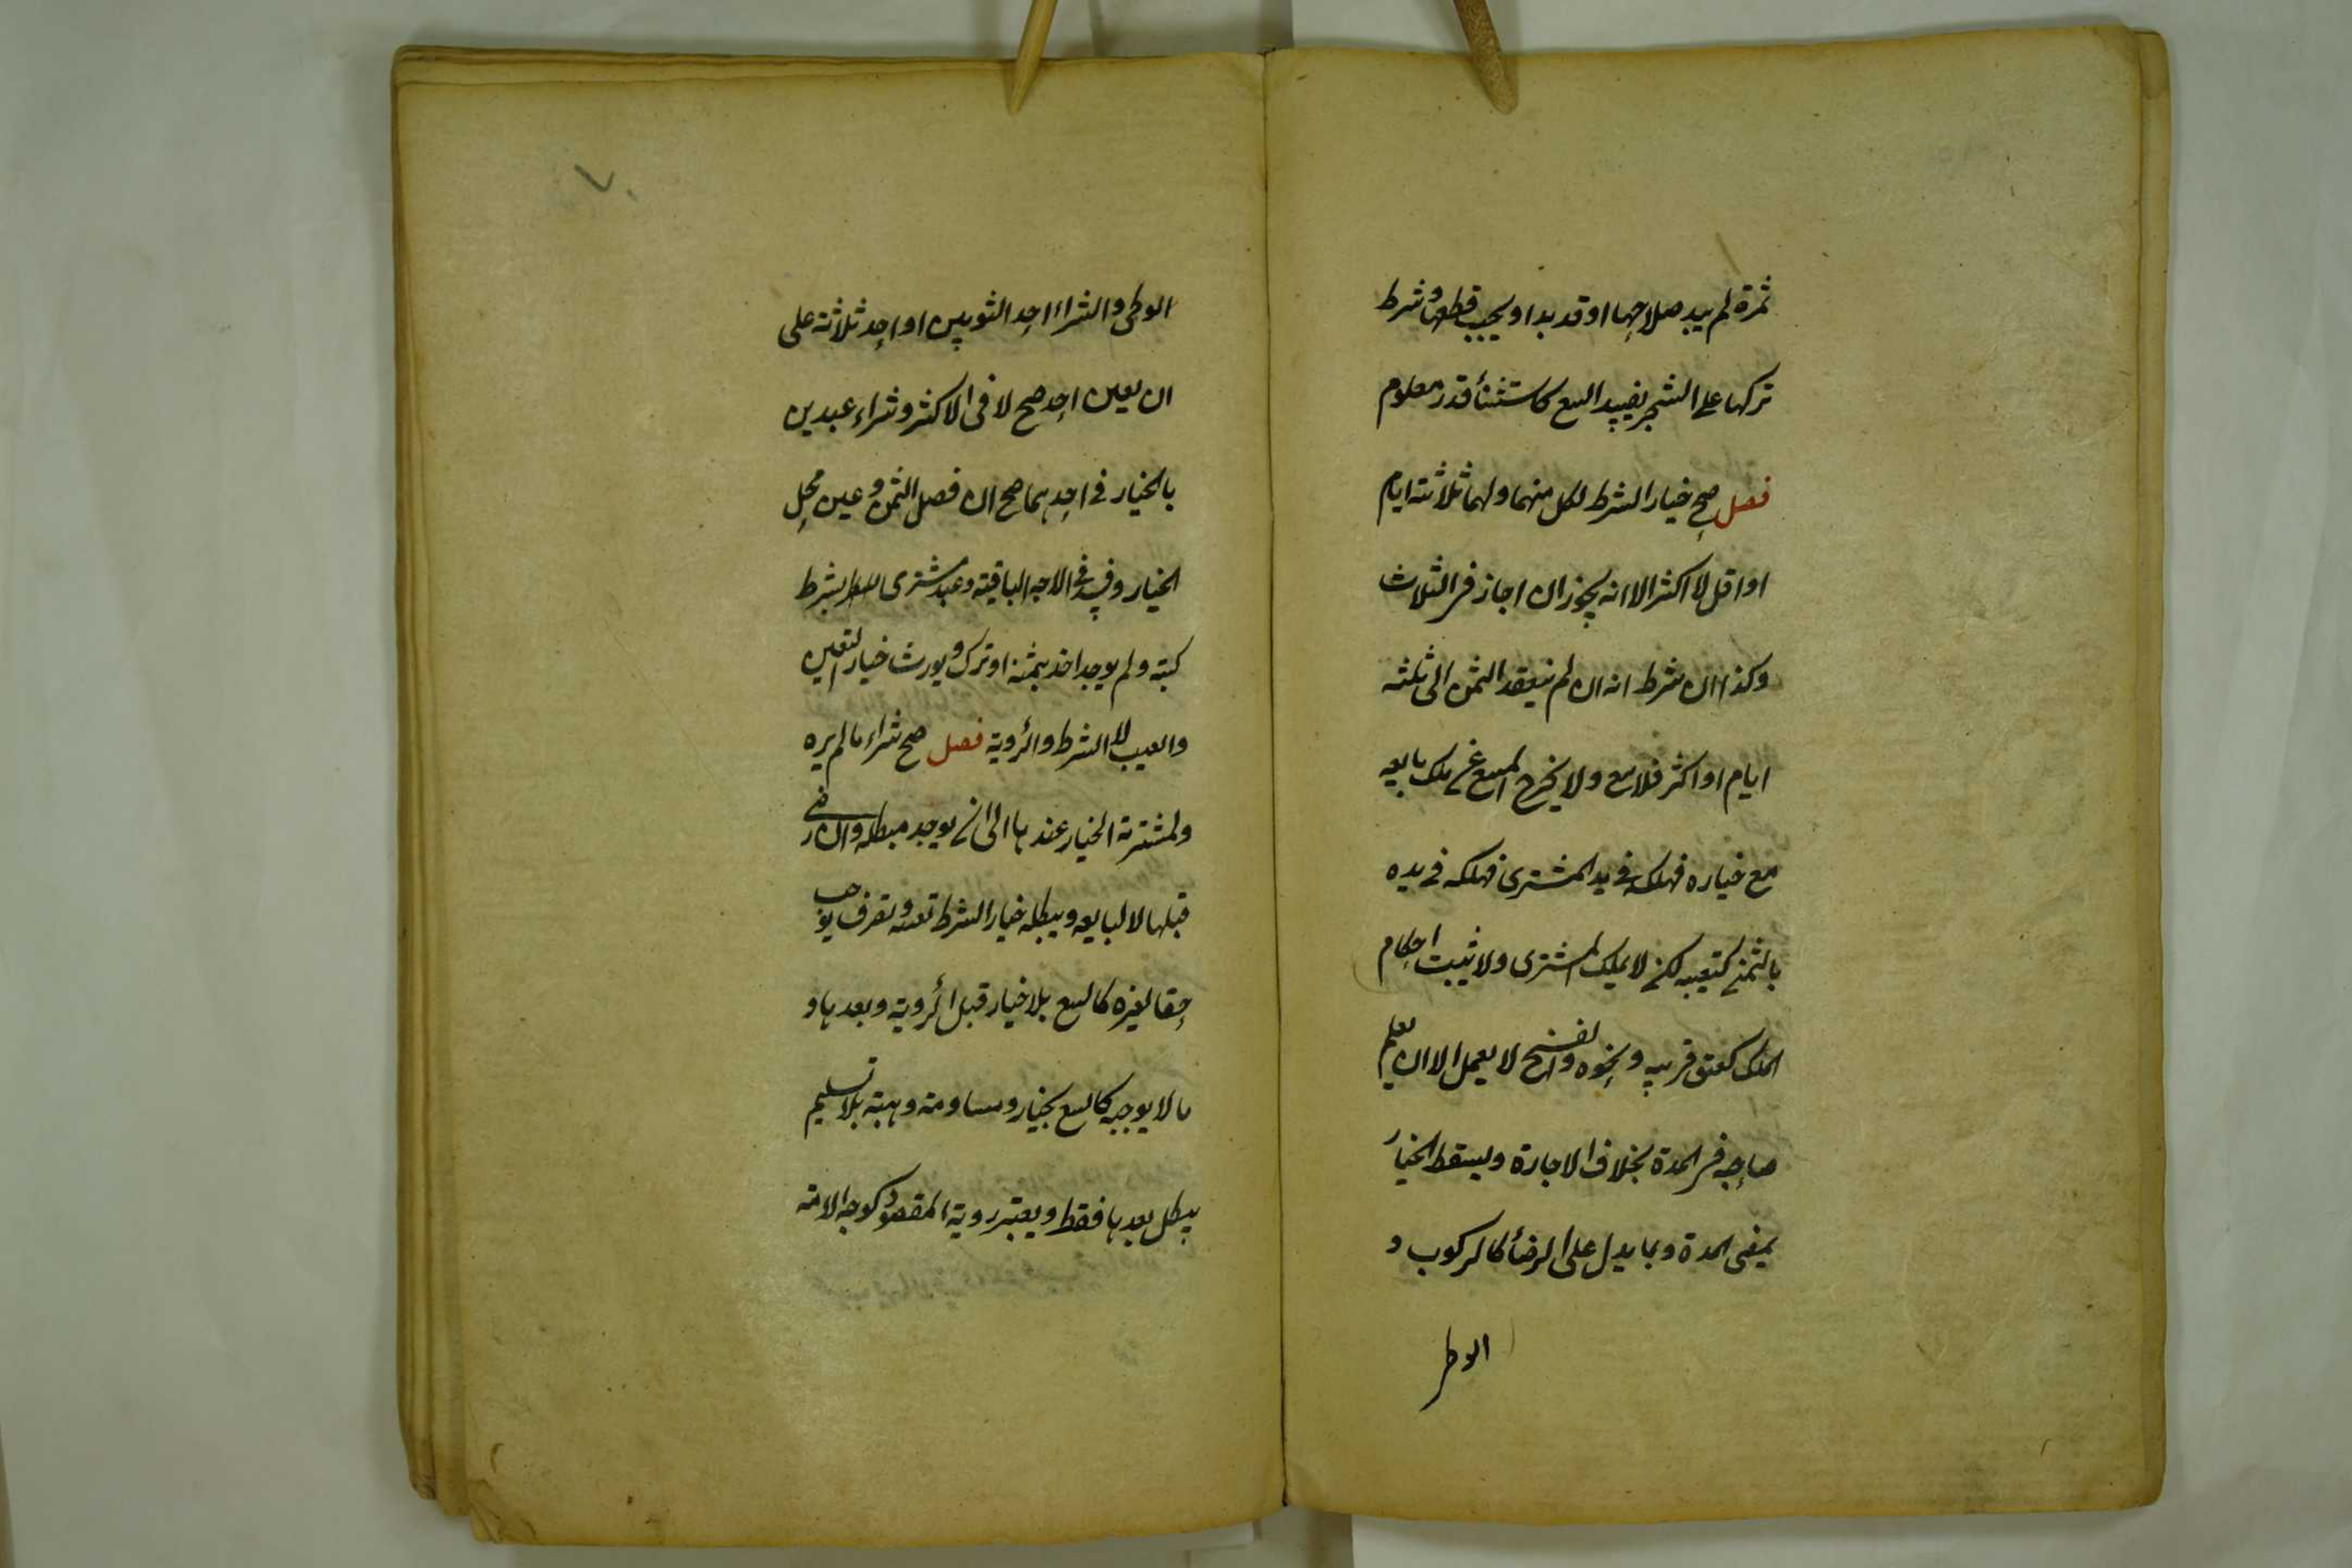 ثمرة لم يبد صلاحها او قد بدا و يجب قطعها و شرط
تركها على الشجر يفسد البيع كاستثناء قدر معلوم
فصل صح خيار الشرط لكل منهما ولهما ثلاثة ايام
او اقل لا اكثر الا انه يجوز ان اجاز فى الثلاث
وكذا ان شرط انه ان لم ينقد الثمن الى ثلثه
ايام او اكثر فلا بيع ولا يخرج المبيع عن ملك بايعه
مع خياره فهلكه فى يد المشترى فهلكه فى يده
بالثمن كتعيبه لكن لا يملك المشترى ولا يثبت احكام
الملك كعتق قريبه و نحوه والفسخ لا يعمل الا ان يعلم
صاحبه فى المدة بخلاف الاجازة ويسقط الخيار
بمضى المدة وبما يدل على الرضأ كالركوب و
الوطى
٧٠
الوطى والشراء احد الثوبين او احد ثلاثة على
ان يعين احد صح لا فى الاكثر و شراء عبدين
بالخيار فى احدهما صح ان فصل الثمن و عين محل
الخيار وفسد فى الاوجه الباقية و عبد مشترى بشرط
كتبه ولم يوجد اخذ بثمنه او ترك و يورث خيار التعين
والعيب لا الشرط والرؤية فصل صح شراء ما لم يره
ولمشتريه الخيار عندها الى ان يوجد مبطله وان رضى
قبلها لا لبايعه ويبطله خيار الشرط تعيبه و تصرف يوجب
حقا لغيره كالبيع بلا خيار قبل الرؤية وبعدها و
ما لا يوجبه كالبيع بخيار و مساومة وهبة بلا تسليم
يبطل بعدها فقط ويعتبر روية المقصود كوجه الامة